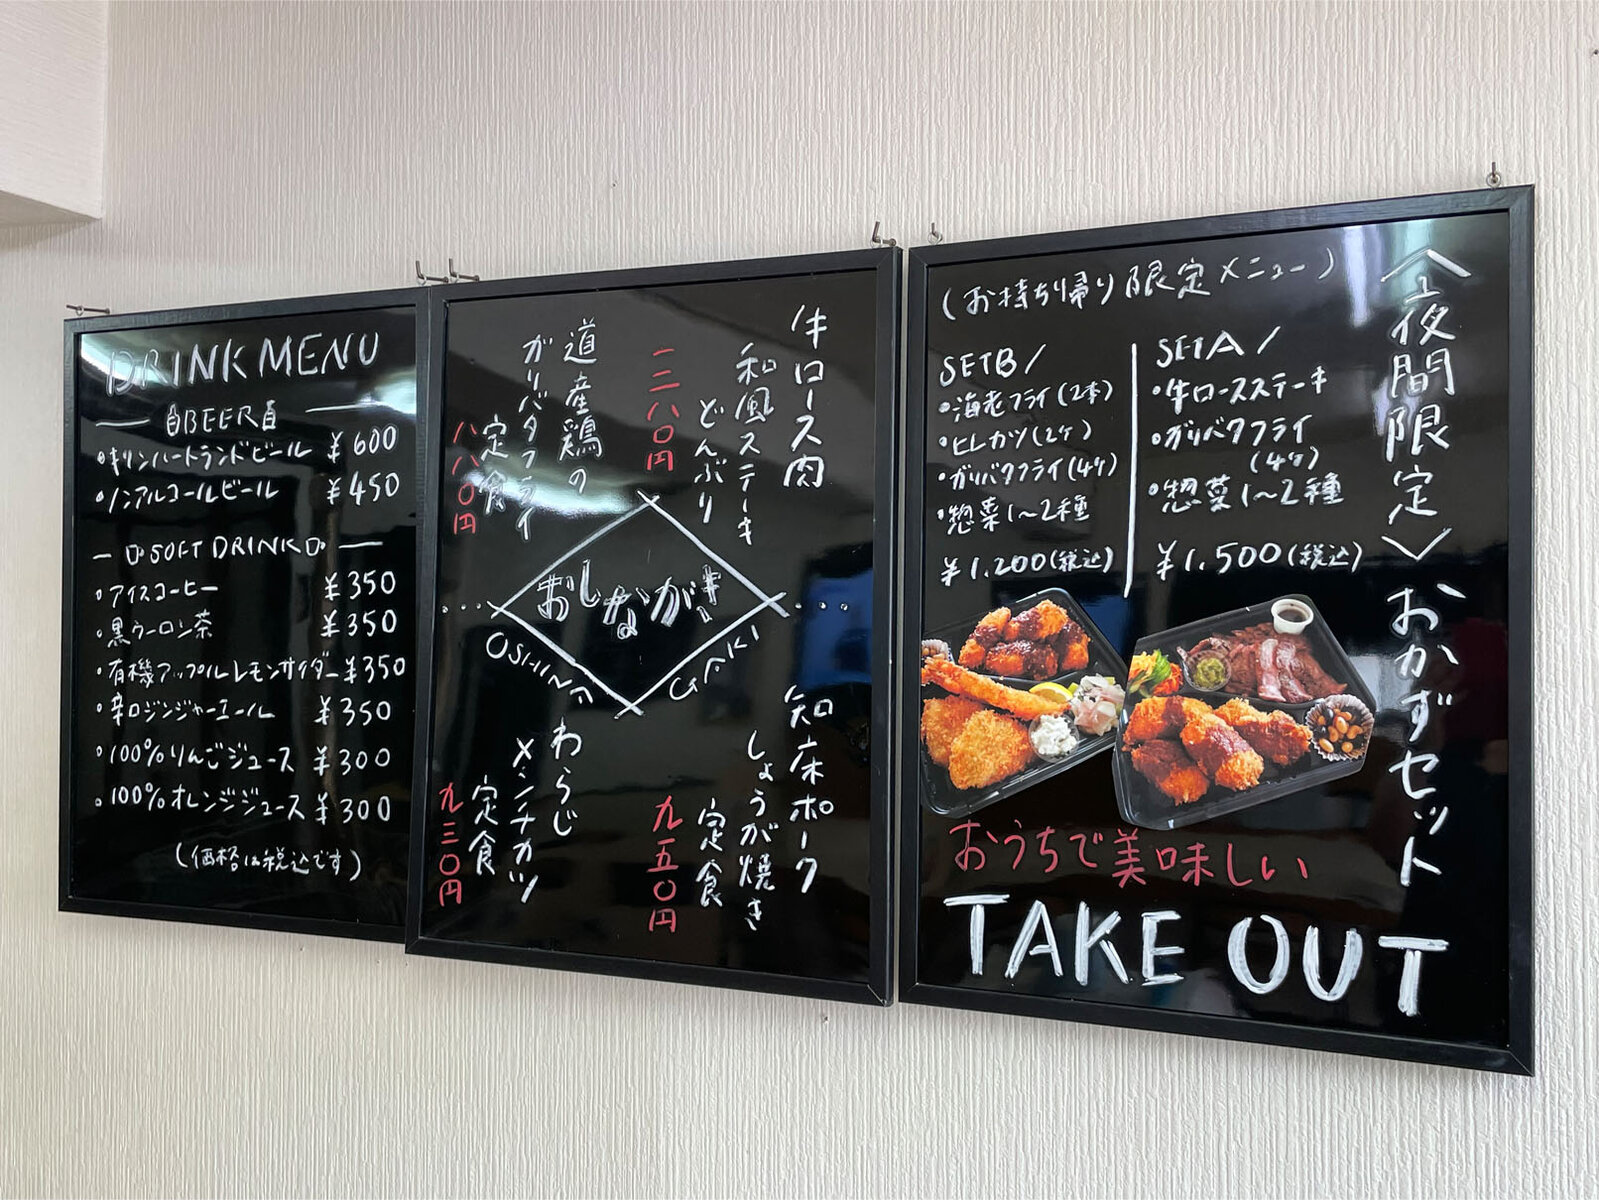 DRINK MENU
BEER
・キリンハートランドビール ¥600
・ノンアルコールビール ¥450
SOFT DRINK
・アイスコーヒー ¥350
・黒ウーロン茶 ¥350
・有機アップルレモンサイダー ¥350
・辛口ジンジャーエール ¥350
・100%りんごジュース ¥300
・100%オレンジジュース ¥300
(価格は税込です)
牛ロース肉
和風ステーキ
どんぶり
一二八〇円
道産鶏の
ガリバタフライ
定食
八八〇円
おしながき
OSHINAGAKI
知床ポーク
しょうが焼き
定食
九五〇円
わらじ
メンチカツ
定食
九三〇円
〈夜間限定〉おかずセット
(お持ち帰り限定メニュー)
SETA/
・牛ロースステーキ
・ガリバタフライ
(4ケ)
・惣菜1~2種
¥1,500(税込)
SETB/
・海老フライ(2本)
・ヒレカツ(2ケ)
・ガリバタフライ(4ケ)
・惣菜1~2種
¥1,200(税込)
おうちで美味しい
TAKE OUT